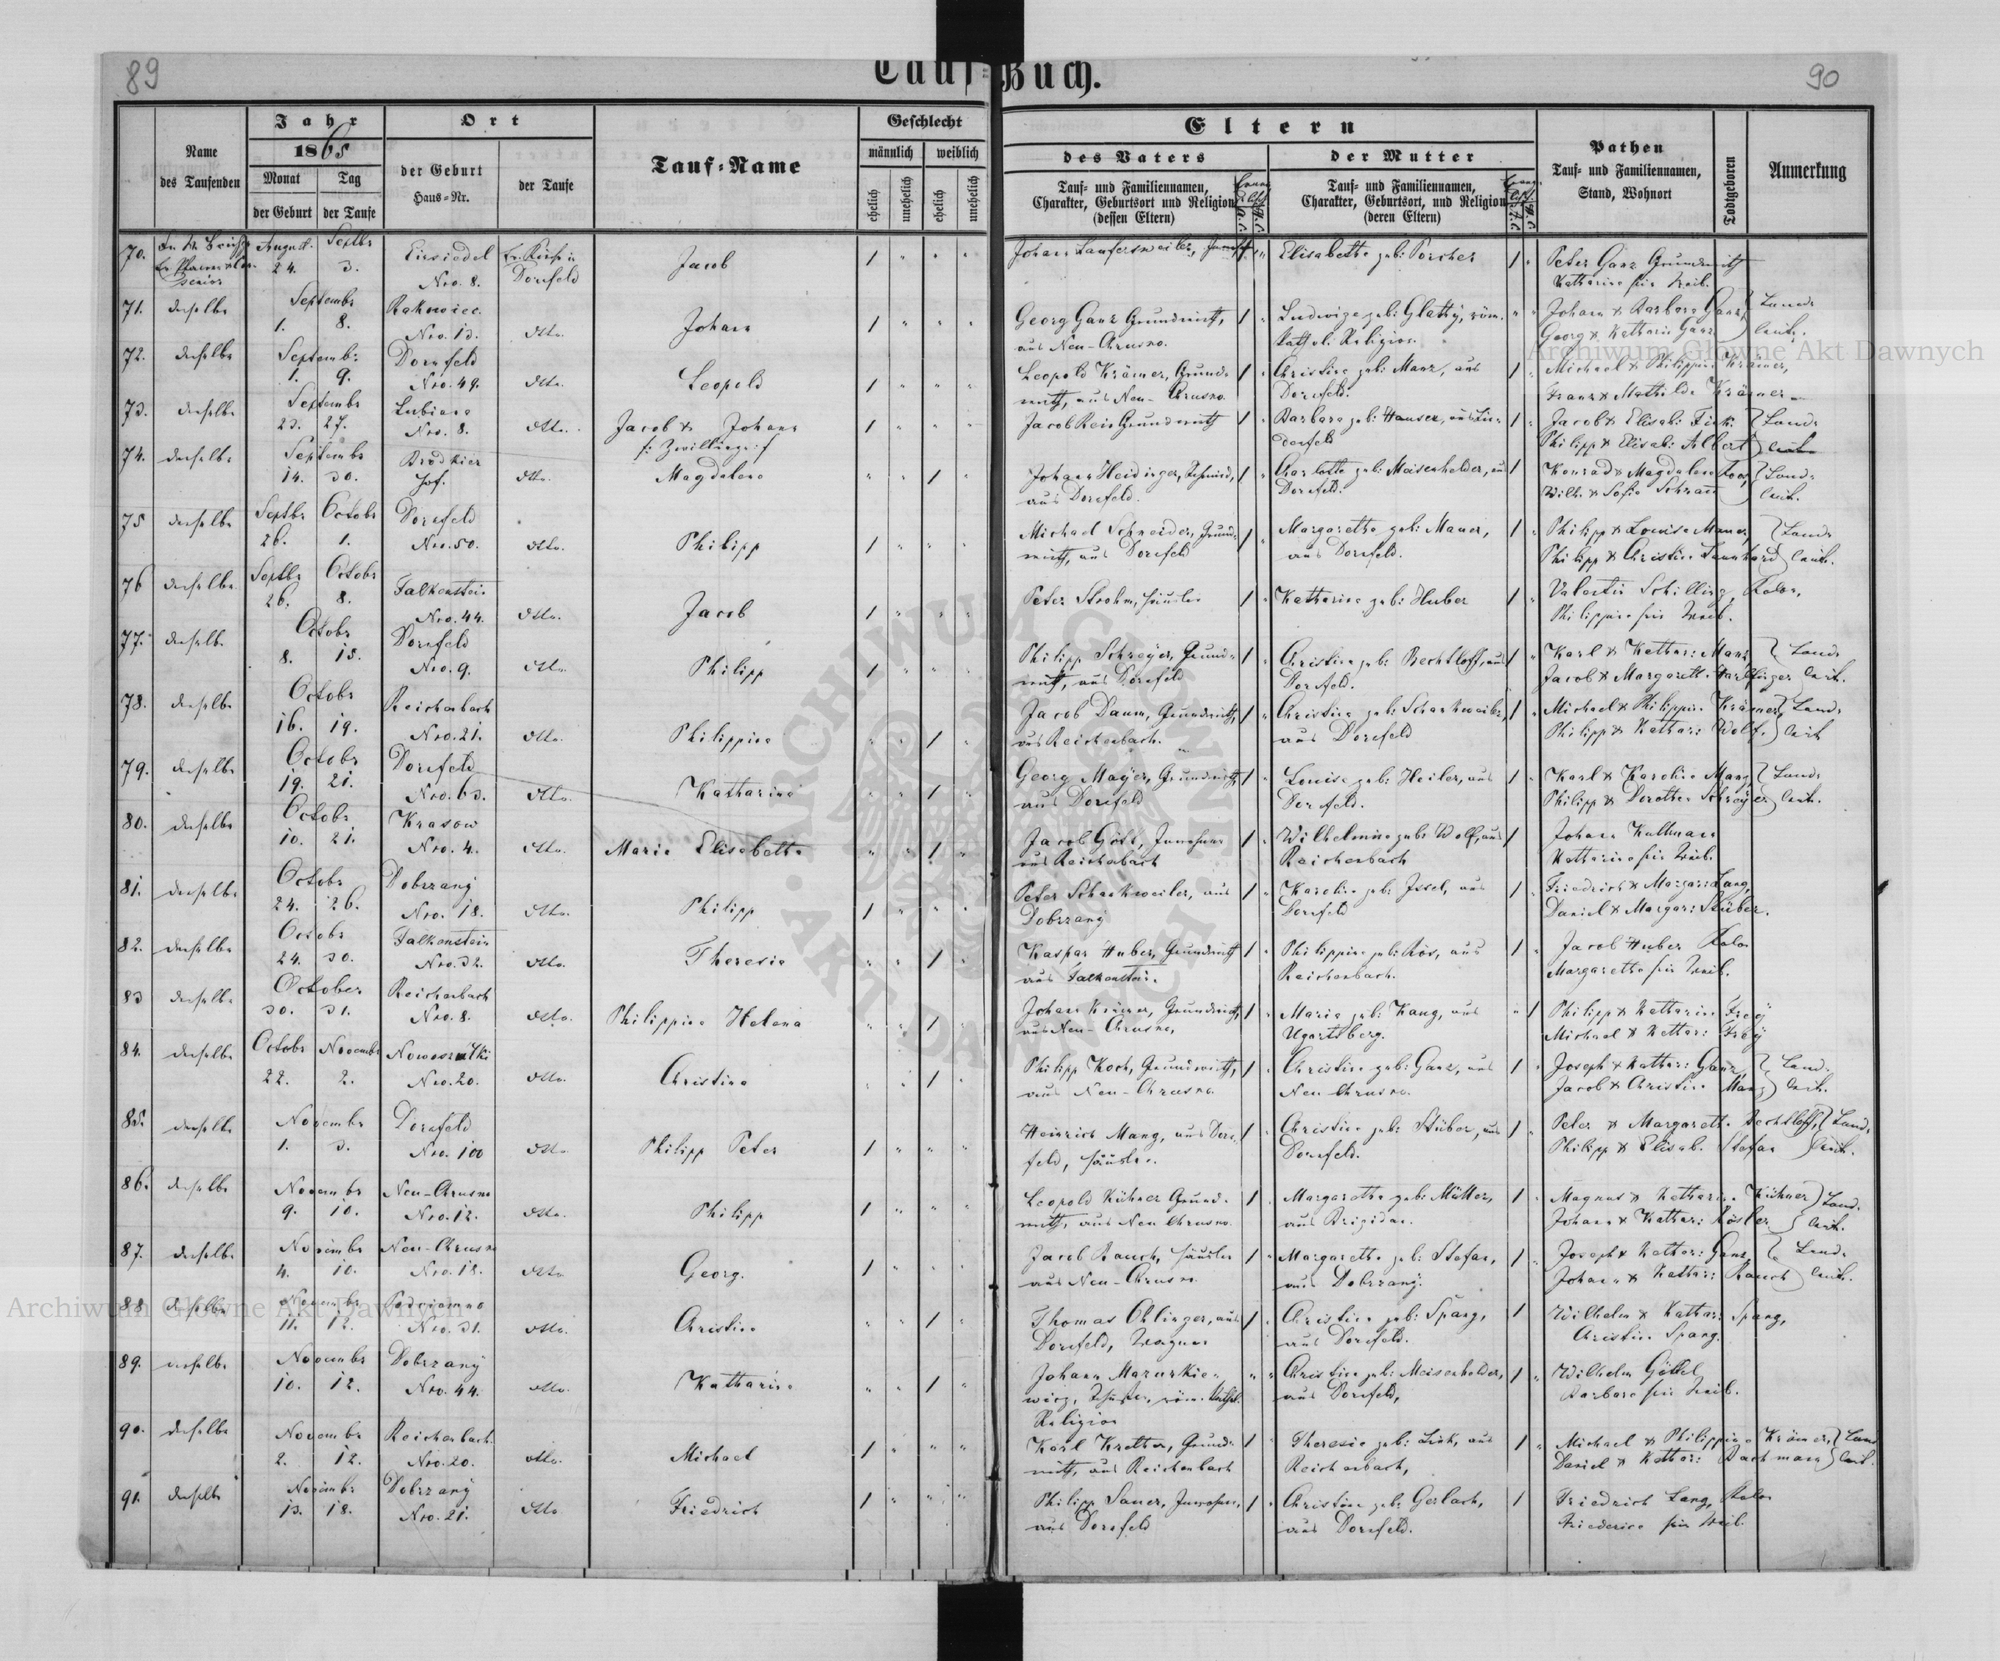 89
Tauf-Buch.
90
Jahr
Ort
Geschlecht
Eltern
Name
des Taufenden
1865
der Geburt
Haus-Nr.
der Taufe
Tauf-Name
männlich
weiblich
des Vaters
der Mutter
Pathen
Tauf- und Familiennamen,
Stand, Wohnort
Todtgeboren
Anmerkung
Monat
Tag
der Geburt
der Taufe
ehelich
unehelich
ehelich
unehelich
Tauf- und Familiennamen,
Charakter, Geburtsort und Religion
(dessen Eltern)
Tauf- und Familiennamen,
Charakter, Geburtsort, und Religion
(deren Eltern)
70. August Septbr Einsiedel
24. 3. Nro. 8. Dornfeld Jacob 1 Elisabetha geb: Porcher 1 Peter Ganz Grundwirth
Katharina sein Weib.
71. derselbe Septembr Rakowiec
1. 8. Nro. 13. dtto. Johann 1 Georg Ganz Grundwirth, 1 Ludwiga geb: Glatty, röm. Johann & Barbara Ganz, Land-
aus Neu-Chrusno. Kath. Religion. Georg & Katharin Ganz leute.
72. derselbe Septembr Dornfeld
1. 9. Nro. 49. dtto. Leopold 1 Leopold Krämer, Grund- 1 Christina geb: Manz, aus 1 Michael & Philippina Krämer,
wirth, aus Neu-Chrusno. Dornfeld. Franz & Mathilde Krämer
73. derselbe Septembr Lubiana
23. 27. Nro. 8. dtto. Jacob & Johann 1 Jacob Reis Grundwirth 1 Barbara geb: Hauser, aus 1 Jacob & Elisab: Land-
Zwillinge Dornfeld Philipp & Elisab: Albert leute
74. derselbe Septembr Brodkier
14. 30. Hof. dtto. Magdalena 1 Johann Heidinger, Schmied, 1 Charlotte geb: Meisenhelder, aus 1 Konrad & Magdalena Land-
aus Dornfeld. Dornfeld. Wilh. & Sofia Schramm leute.
75 derselbe Septbr Octobr Dornfeld
26. 1. Nro. 50. dtto. Philipp 1 Michael Schneider, Grund- 1 Margaretha geb: Mauer, 1 Philipp & Louise Mauer, Land-
wirth, aus Dornfeld aus Dornfeld. Philipp & Christina leute.
76 derselbe Septbr Octobr Falkenstein
26. 8. Nro. 44. dtto. Jacob 1 Peter Strohm, Häusler 1 Katharina geb: Huber 1 Valentin Schilling, Kolon,
Philippina sein Weib.
77. derselbe Octobr Dornfeld
8. 15. Nro. 9. dtto. Philipp 1 Philipp Schreyer, Grund- 1 Christina geb: Bechtloff, aus 1 Karl & Kathar: Manz Land-
wirth, aus Dornfeld Dornfeld. Jacob & Margareth. leute.
78. derselbe Octobr Reichenbach
16. 19. Nro. 21. dtto. Philippina 1 Jacob Daum, Grundwirth, 1 Christina geb: Schankweiler, 1 Michael & Philippina Krämer, Land-
aus Reichenbach. aus Dornfeld Philipp & Kathar: Wolf. leute
79. derselbe Octobr Dornfeld
19. 21. Nro. 63. dtto. Katharina 1 Georg Mayer, Grundwirth, 1 Louise geb: Heiler, aus 1 Karl & Karolina Manz Land-
aus Dornfeld Dornfeld. Philipp & Dorothea Schreyer leute.
80. derselbe Octobr Krasow
10. 21. Nro. 4. dtto. Maria Elisabetha 1 Jacob Gött, Inwohner 1 Wilhelmina geb: Wolf, aus 1 Johann Kullmann
aus Reichenbach Reichenbach Katharina sein Weib.
81. derselbe Octobr Dobrzany
24. 26. Nro. 18. dtto. Philipp 1 Peter Schankweiler, aus 1 Karolina geb: Issel, aus 1 Friedrich & Margar: Lang,
Dobrzany Dornfeld Daniel & Margar: Stüber.
82. derselbe Octobr Falkenstein
24. 30. Nro. 32. dtto. Theresia 1 Kaspar Huber, Grundwirth 1 Philippina geb: Rös, aus 1 Jacob Huber Kolon
aus Falkenstein. Reichenbach. Margaretha sein Weib.
83 derselbe October Reichenbach
30. 31. Nro. 8. dtto. Philippina Helena 1 Johann Krämer, Grundwirth, 1 Maria geb: Kang, aus 1 Philipp & Katharina Frey
aus Neu-Chrusno, Ugartsberg. Michael & Kathar: Frey
84. derselbe Octobr Novembr Nowosiulki
22. 2. Nro. 20. dtto. Christina 1 Philipp Koch, Grundwirth, 1 Christina geb: Ganz, aus 1 Joseph & Kathar: Ganz, Land-
aus Neu-Chrusno. Neu Chrusno. Jacob & Christina Manz leute.
85. derselbe Novembr Dornfeld
1. 3. Nro. 100 dtto. Philipp Peter 1 Heinrich Mang, aus Dorn- 1 Christina geb: Stüber, aus 1 Peter & Margareth. Bechtloff, Land-
feld, Häusler. Dornfeld. Philipp & Elisab. Stefan leute.
86. derselbe Novembr Neu-Chrusno
9. 10. Nro. 12. dtto. Philipp 1 Leopold Kühner Grund- 1 Margaretha geb: Müller, 1 Magnus & Katharina Kühner Land-
wirth, aus Neu Chrusno. aus Brigidau. Johann & Kathar: Rösler leute.
87. derselbe Novembr Neu-Chrusno
4. 10. Nro. 18. dtto Georg. 1 Jacob Rauch, Häusler 1 Margaretha geb: Stefan, 1 Joseph & Kathar: Ganz, Land-
aus Neu-Chrusno. aus Dobrzany. Johann & Kathar: Rauch leute.
88 derselbe Novembr Podciemno
11. 12. Nro. 31. dtto. Christina 1 Thomas Ohlinger, aus 1 Christina geb: Spang, 1 Wilhelm & Kathar: Spang,
Dornfeld, Wagner aus Dornfeld. Christina Spang.
89. derselbe Novembr Dobrzany
10. 12. Nro. 44. dtto. Katharina 1 Johann Mazurkie- Christina geb: Meisenhelder, 1 Wilhelm Göttel
wicz, röm. Kathol. aus Dornfeld, Barbara sein Weib.
Religion
90. derselbe Novembr Reichenbach
2. 12. Nro. 20. dtto. Michael 1 Karl Kretter, Grund- 1 Theresia geb: aus 1 Michael & Philippina Krämer, Land
wirth, aus Reichenbach Reichenbach, Daniel & Kathar: Bachmann leut.
91. derselbe Novembr Dobrzany
13. 18. Nro. 21. dtto Friedrich 1 Philipp Sauer, Inwohner, 1 Christina geb: Gerlach, 1 Friedrich Lang, Kolon
aus Dornfeld aus Dornfeld. Friederica sein Weib.
Archiwum Główne Akt Dawnych
Archiwum Główne Akt Dawnych
ARCHIWUM GŁÓWNE AKT DAWNYCH